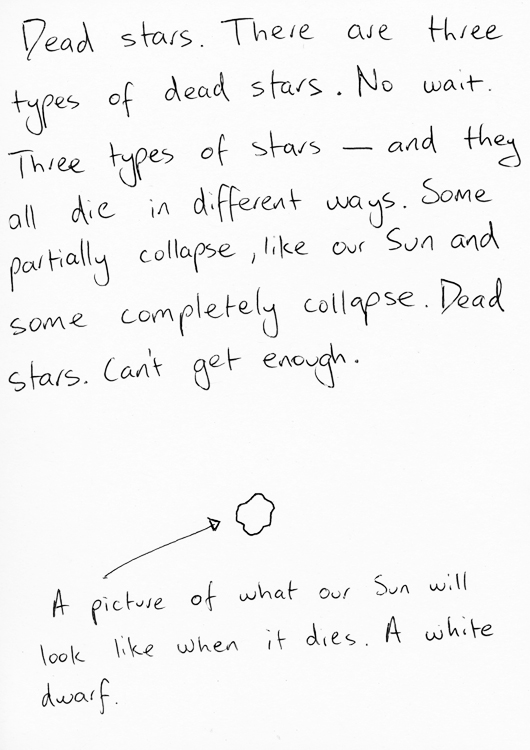 Dead stars. There are three
types of dead stars. No wait.
Three types of stars — and they
all die in different ways. Some
partially collapse, like our Sun and
some completely collapse. Dead
stars. Can't get enough.
A picture of what our Sun will
look like when it dies. A white
dwarf.